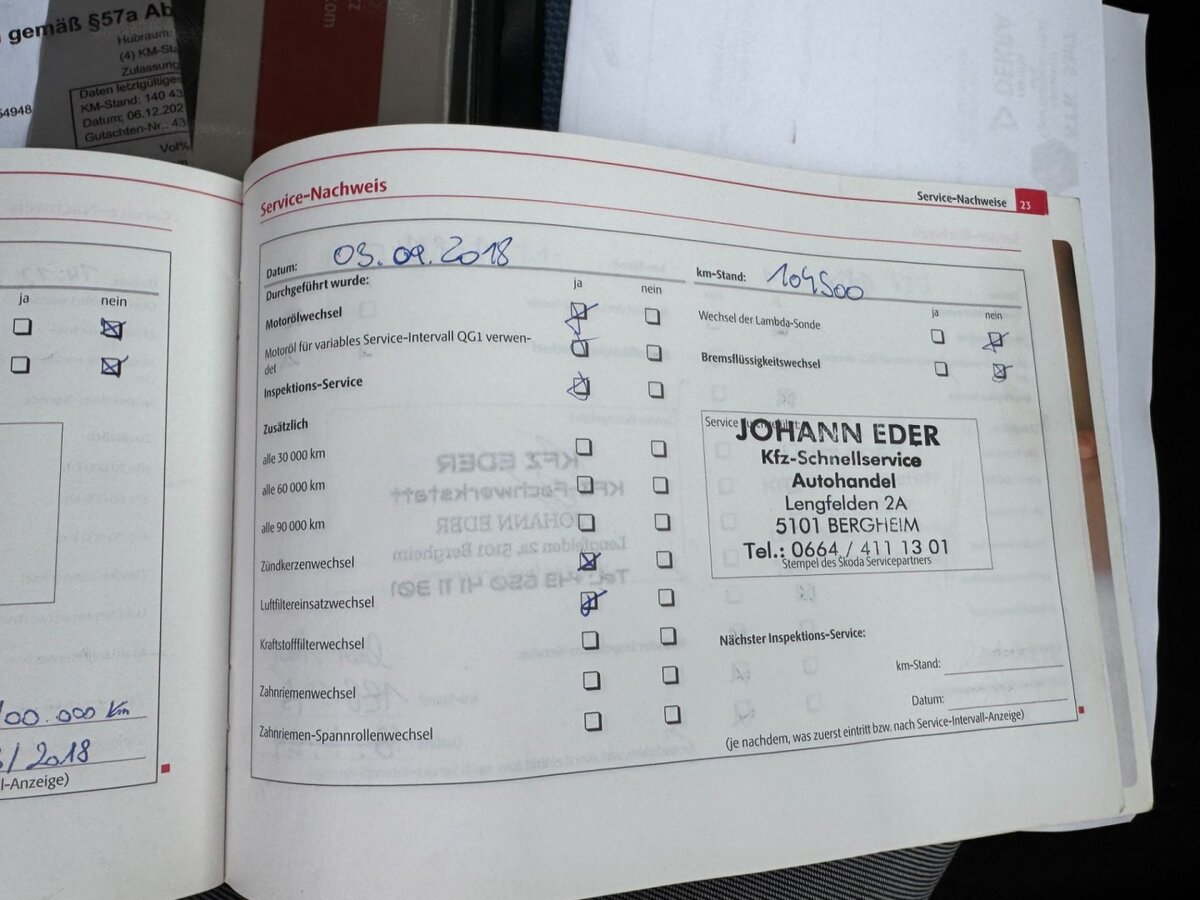 gemäß §57a
Hubraum:
(4) KM-St
Zulassung
Daten letztgültiges
KM-Stand: 140 43
Datum: 06.12.202
Gutachten-Nr.: 43
54948
Vol%
DEKRA
ja nein
00.000 Km
/ 2018
l-Anzeige)
Service-Nachweis
Service-Nachweise 23
Datum: 03.09.2018
km-Stand: 104500
Durchgeführt wurde: ja nein
Motorölwechsel
Motoröl für variables Service-Intervall QG1 verwen-
det
Inspektions-Service
Zusätzlich
alle 30 000 km
alle 60 000 km
alle 90 000 km
Zündkerzenwechsel
Luftfiltereinsatzwechsel
Kraftstofffilterwechsel
Zahnriemenwechsel
Zahnriemen-Spannrollenwechsel
ja nein
Wechsel der Lambda-Sonde
Bremsflüssigkeitswechsel
Service
JOHANN EDER
Kfz-Schnellservice
Autohandel
Lengfelden 2A
5101 BERGHEIM
Tel.: 0664 / 411 13 01
Stempel des Škoda Servicepartners
Nächster Inspektions-Service:
km-Stand:
Datum:
(je nachdem, was zuerst eintritt bzw. nach Service-Intervall-Anzeige)